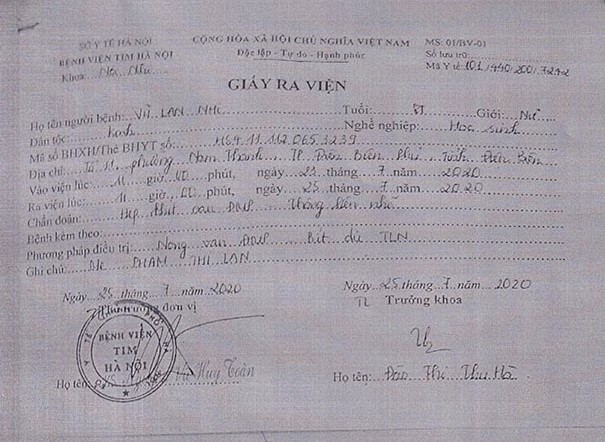 SỞ Y TẾ HÀ NỘI
BỆNH VIỆN TIM HÀ NỘI
Khoa: Nội Nhi
CỘNG HÒA XÃ HỘI CHỦ NGHĨA VIỆT NAM
Độc lập - Tự do - Hạnh phúc
MS: 01/BV-01
Số lưu trữ:
Mã Y tế 101/440/200/7242
GIẤY RA VIỆN
Họ tên người bệnh: VŨ LAN NHI Tuổi: Giới: Nữ
Dân tộc: Kinh Nghề nghiệp: Học sinh
Mã số BHXH/Thẻ BHYT số:
Địa chỉ: Tổ 11, phường Nam Thanh, TP Điện Biên Phủ, Tỉnh Điện Biên
Vào viện lúc: 11 giờ, 00 phút, ngày 23 tháng 7 năm 2020
Ra viện lúc: 11 giờ, 00 phút, ngày 25 tháng 7 năm 2020
Chẩn đoán: Hẹp khít van ĐMP - Thông liên nhĩ
Bệnh kèm theo:
Phương pháp điều trị: Nong van ĐMP - Bít dù TLN
Ghi chú: Mẹ PHẠM THỊ LAN
Ngày 25 tháng 7 năm 2020
Thủ trưởng đơn vị
BỆNH VIỆN
TIM
HÀ NỘI
Họ tên: Huy Toàn
Ngày 25 tháng 7 năm 2020
TL Trưởng khoa
Họ tên: Đào Thị Thu Hà